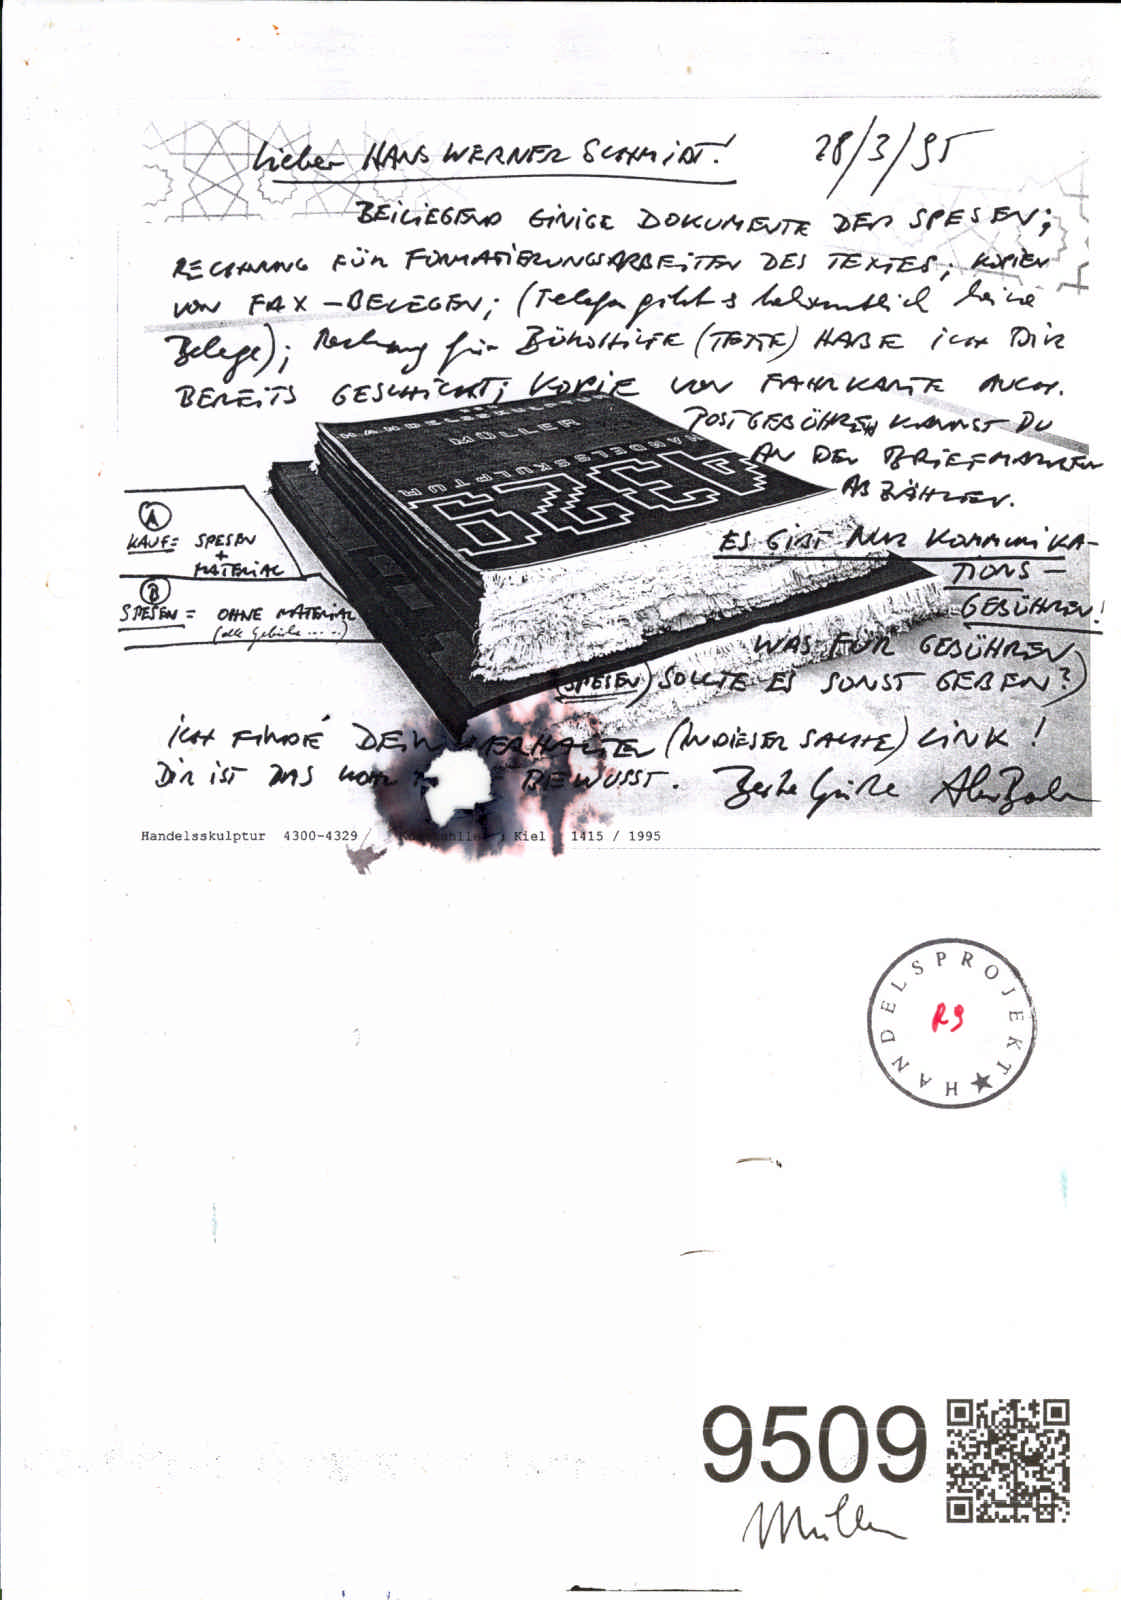 Lieber HANS WERNER SCHMIDT! 28/3/95
BEILIEGEND EINIGE DOKUMENTE DER SPESEN;
RECHNUNG FÜR FORMATIERUNGSARBEITEN DES TEXTES; KOPIEN
VON FAX-BELEGEN; (Telefon gibt s bekanntlich keine
Belege); Rechnung für BÜROHILFE (TEXTE) HABE ICH DIR
BEREITS GESCHICKT; KOPIE VON FAHRKARTE AUCH.
POSTGEBÜHREN KANNST DU
AN DEN BRIEFMARKEN
ABZÄHLEN.
ES GIBT NUR KOMMUNIKA-
TIONS-
GEBÜHREN!
WAS FÜR GEBÜHREN
(SPESEN) SOLLTE ES SONST GEBEN?)
A
KAUF = SPESEN
+
MATERIAL
B
SPESEN = OHNE MATERIAL
(alle Gebühr.....)
HANDELSSKULPTUR
MÜLLER
HANDELSSKULPTUR
4329
ICH FINDE DEIN VERHALTEN (IN DIESER SACHE) LINK!
DIR IST DAS WOHL BEWUSST. Beste Grüße
Handelsskulptur 4300-4329 / Kunsthalle Kiel 1415 / 1995
HANDELSPROJEKT ★
R9
9509
Müller